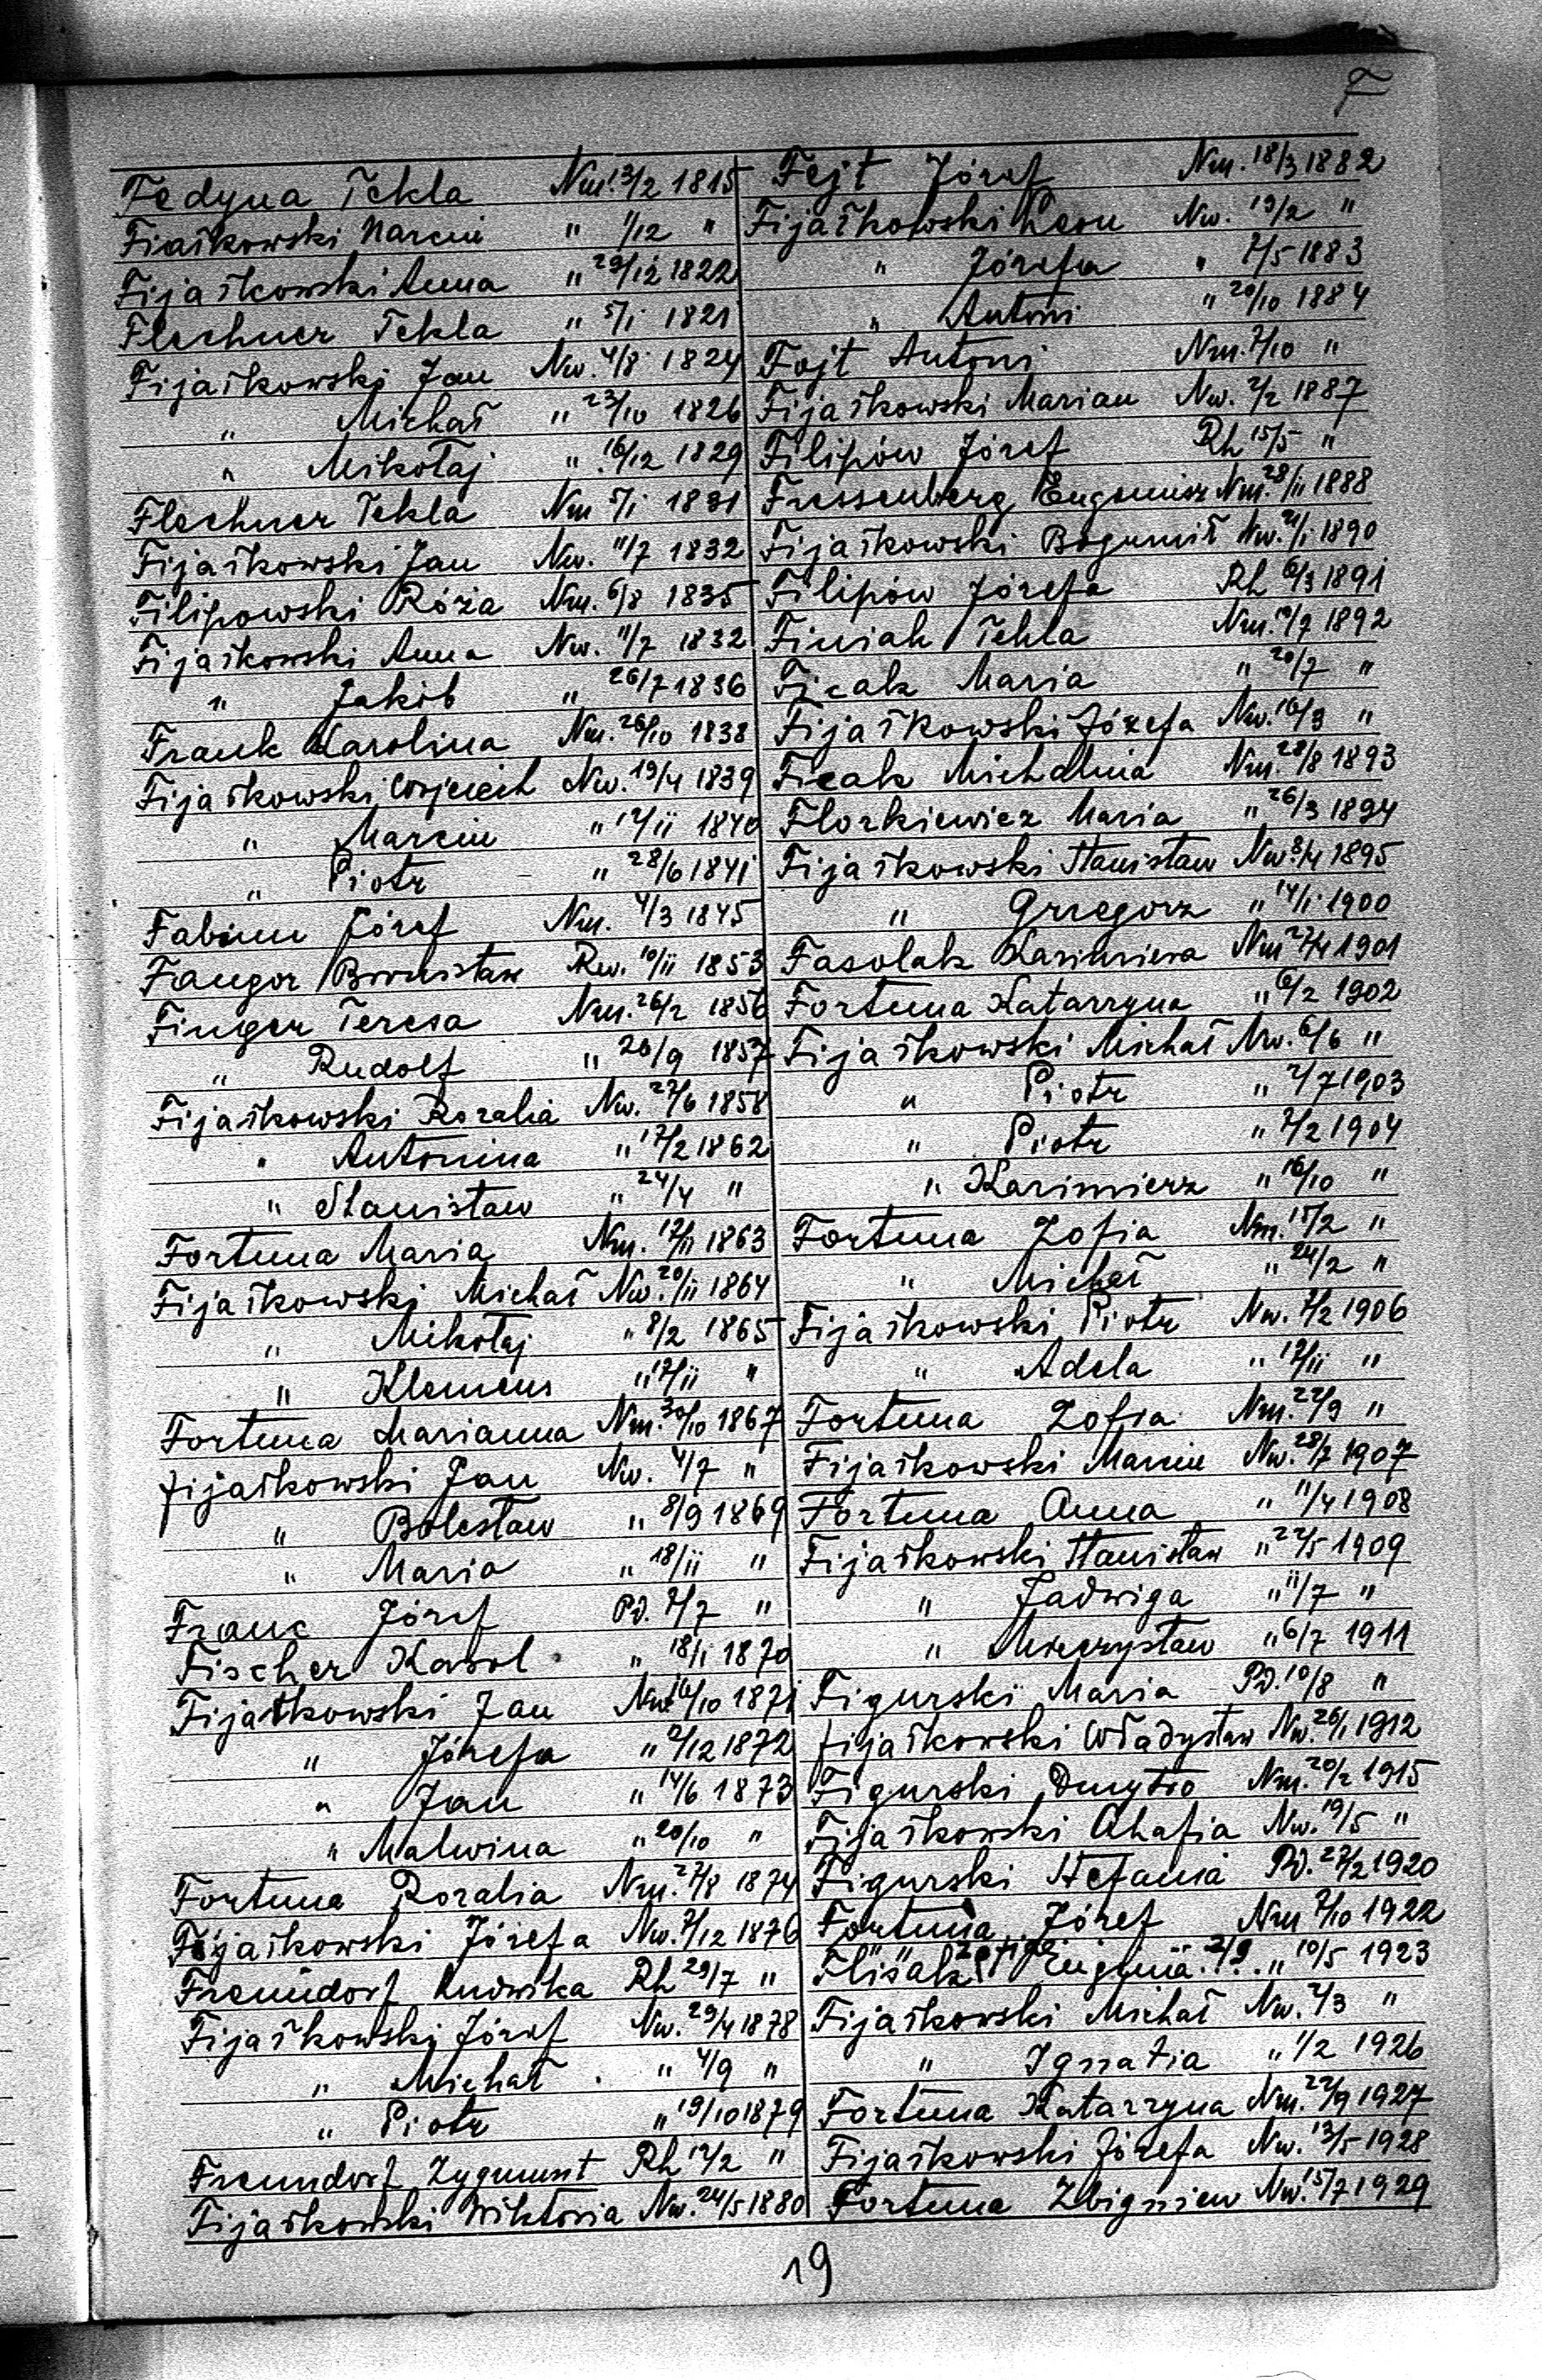 F
Fedyna Tekla Nm. 13/2 1815
Fiałkowski Marcin " 1/12 "
Fijałkowski Anna " 29/12 1822
Flechner Tekla " 5/1 1821
Fijałkowski Jan Nw. 4/8 1824
" Michał " 23/10 1826
" Mikołaj " 16/12 1829
Flechner Tekla Nm 5/1 1831
Fijałkowski Jan Nw. 11/7 1832
Filipowski Róża Nm. 6/8 1835
Fijałkowski Anna Nw. 11/7 1832
" Jakób " 26/7 1836
Frank Karolina Nm. 26/10 1838
Fijałkowski Wojciech Nw. 19/4 1839
" Marcin " 12/11 1840
" Piotr " 28/6 1841
Fabinn Józef Nm. 4/3 1845
Fangor Bronisław Rw. 10/11 1853
Finger Teresa Nm. 26/2 1856
" Rudolf " 26/9 1857
Fijałkowski Rozalia Nw. 27/6 1858
" Antonina " 17/2 1862
" Stanisław " 24/4 "
Fortuna Maria Nm. 17/11 1863
Fijałkowski Michał Nw. 20/11 1864
" Mikołaj " 8/2 1865
" Klemens " 17/11 "
Fortuna Marianna Nm. 30/10 1867
Fijałkowski Jan Nw. 4/7 "
" Bolesław " 8/9 1869
" Maria " 18/11 "
Franc Józef Pd. 7/7 "
Fischer Karol " 18/1 1870
Fijałkowski Jan Nw. 16/10 1871
" Józefa " 9/12 1872
" Jan " 14/6 1873
" Malwina " 20/10 "
Fortuna Rozalia Nm. 27/8 1874
Fijałkowski Józefa Nw. 7/12 1876
Freundorf Ludwika Rh 29/7 "
Fijałkowski Józef Nw. 29/4 1878
" Michał " 4/9 "
" Piotr " 19/10 1879
Freundorf Zygmunt Rh 12/2 "
Fijałkowski Wiktoria Nw. 24/5 1880
Fejt Józef Nm. 18/3 1882
Fijałkowski Leon Nw. 19/2 "
" Józefa " 7/5 1883
" Antoni " 20/10 1884
Fojt Antoni Nm. 7/10 "
Fijałkowski Marian Nw. 2/2 1887
Filipów Józef Rh 15/5 "
Fressenberg Eugeniusz Nm. 28/11 1888
Fijałkowski Bogumił Nw. 21/1 1890
Filipów Józefa Rh 6/3 1891
Finiak Tekla Nm. 19/7 1892
Ficak Maria " 20/7 "
Fijałkowski Józefa Nw. 16/3 "
Ficak Michalina Nm. 28/8 1893
Florkiewicz Maria " 26/3 1894
Fijałkowski Stanisław Nw. 3/4 1895
" Grzegorz " 14/1 1900
Fasolak Kazimiera Nm 27/4 1901
Fortuna Katarzyna " 6/2 1902
Fijałkowski Michał Nw. 6/6 "
" Piotr " 2/7 1903
" Piotr " 7/2 1904
" Kazimierz " 16/10 "
Fortuna Zofia Nm. 15/2 "
" Michał " 24/2 "
Fijałkowski Piotr Nw. 7/2 1906
" Adela " 19/11 "
Fortuna Zofia Nm. 22/9 "
Fijałkowski Marcin Nw. 28/7 1907
Fortuna Anna " 11/4 1908
Fijałkowski Stanisław " 27/5 1909
" Jadwiga " 11/7 "
" Mieczysław " 6/7 1911
Figurski Maria Pd. 10/8 "
Fijałkowski Władysław Nw. 26/1 1912
Figurski Dmytro Nm. 20/2 1915
Fijałkowski Ahafia Nw. 19/5 "
Figurski Stefania Pd. 27/2 1920
Fortuna Józef Nm 7/10 1922
Flisak Eugenia " 10/5 1923
Fijałkowski Michał Nw. 2/3 "
" Ignatia " 1/2 1926
Fortuna Katarzyna Nm. 27/9 1927
Fijałkowski Józefa Nw. 13/5 1928
Fortuna Zbigniew Nw. 15/7 1929
19